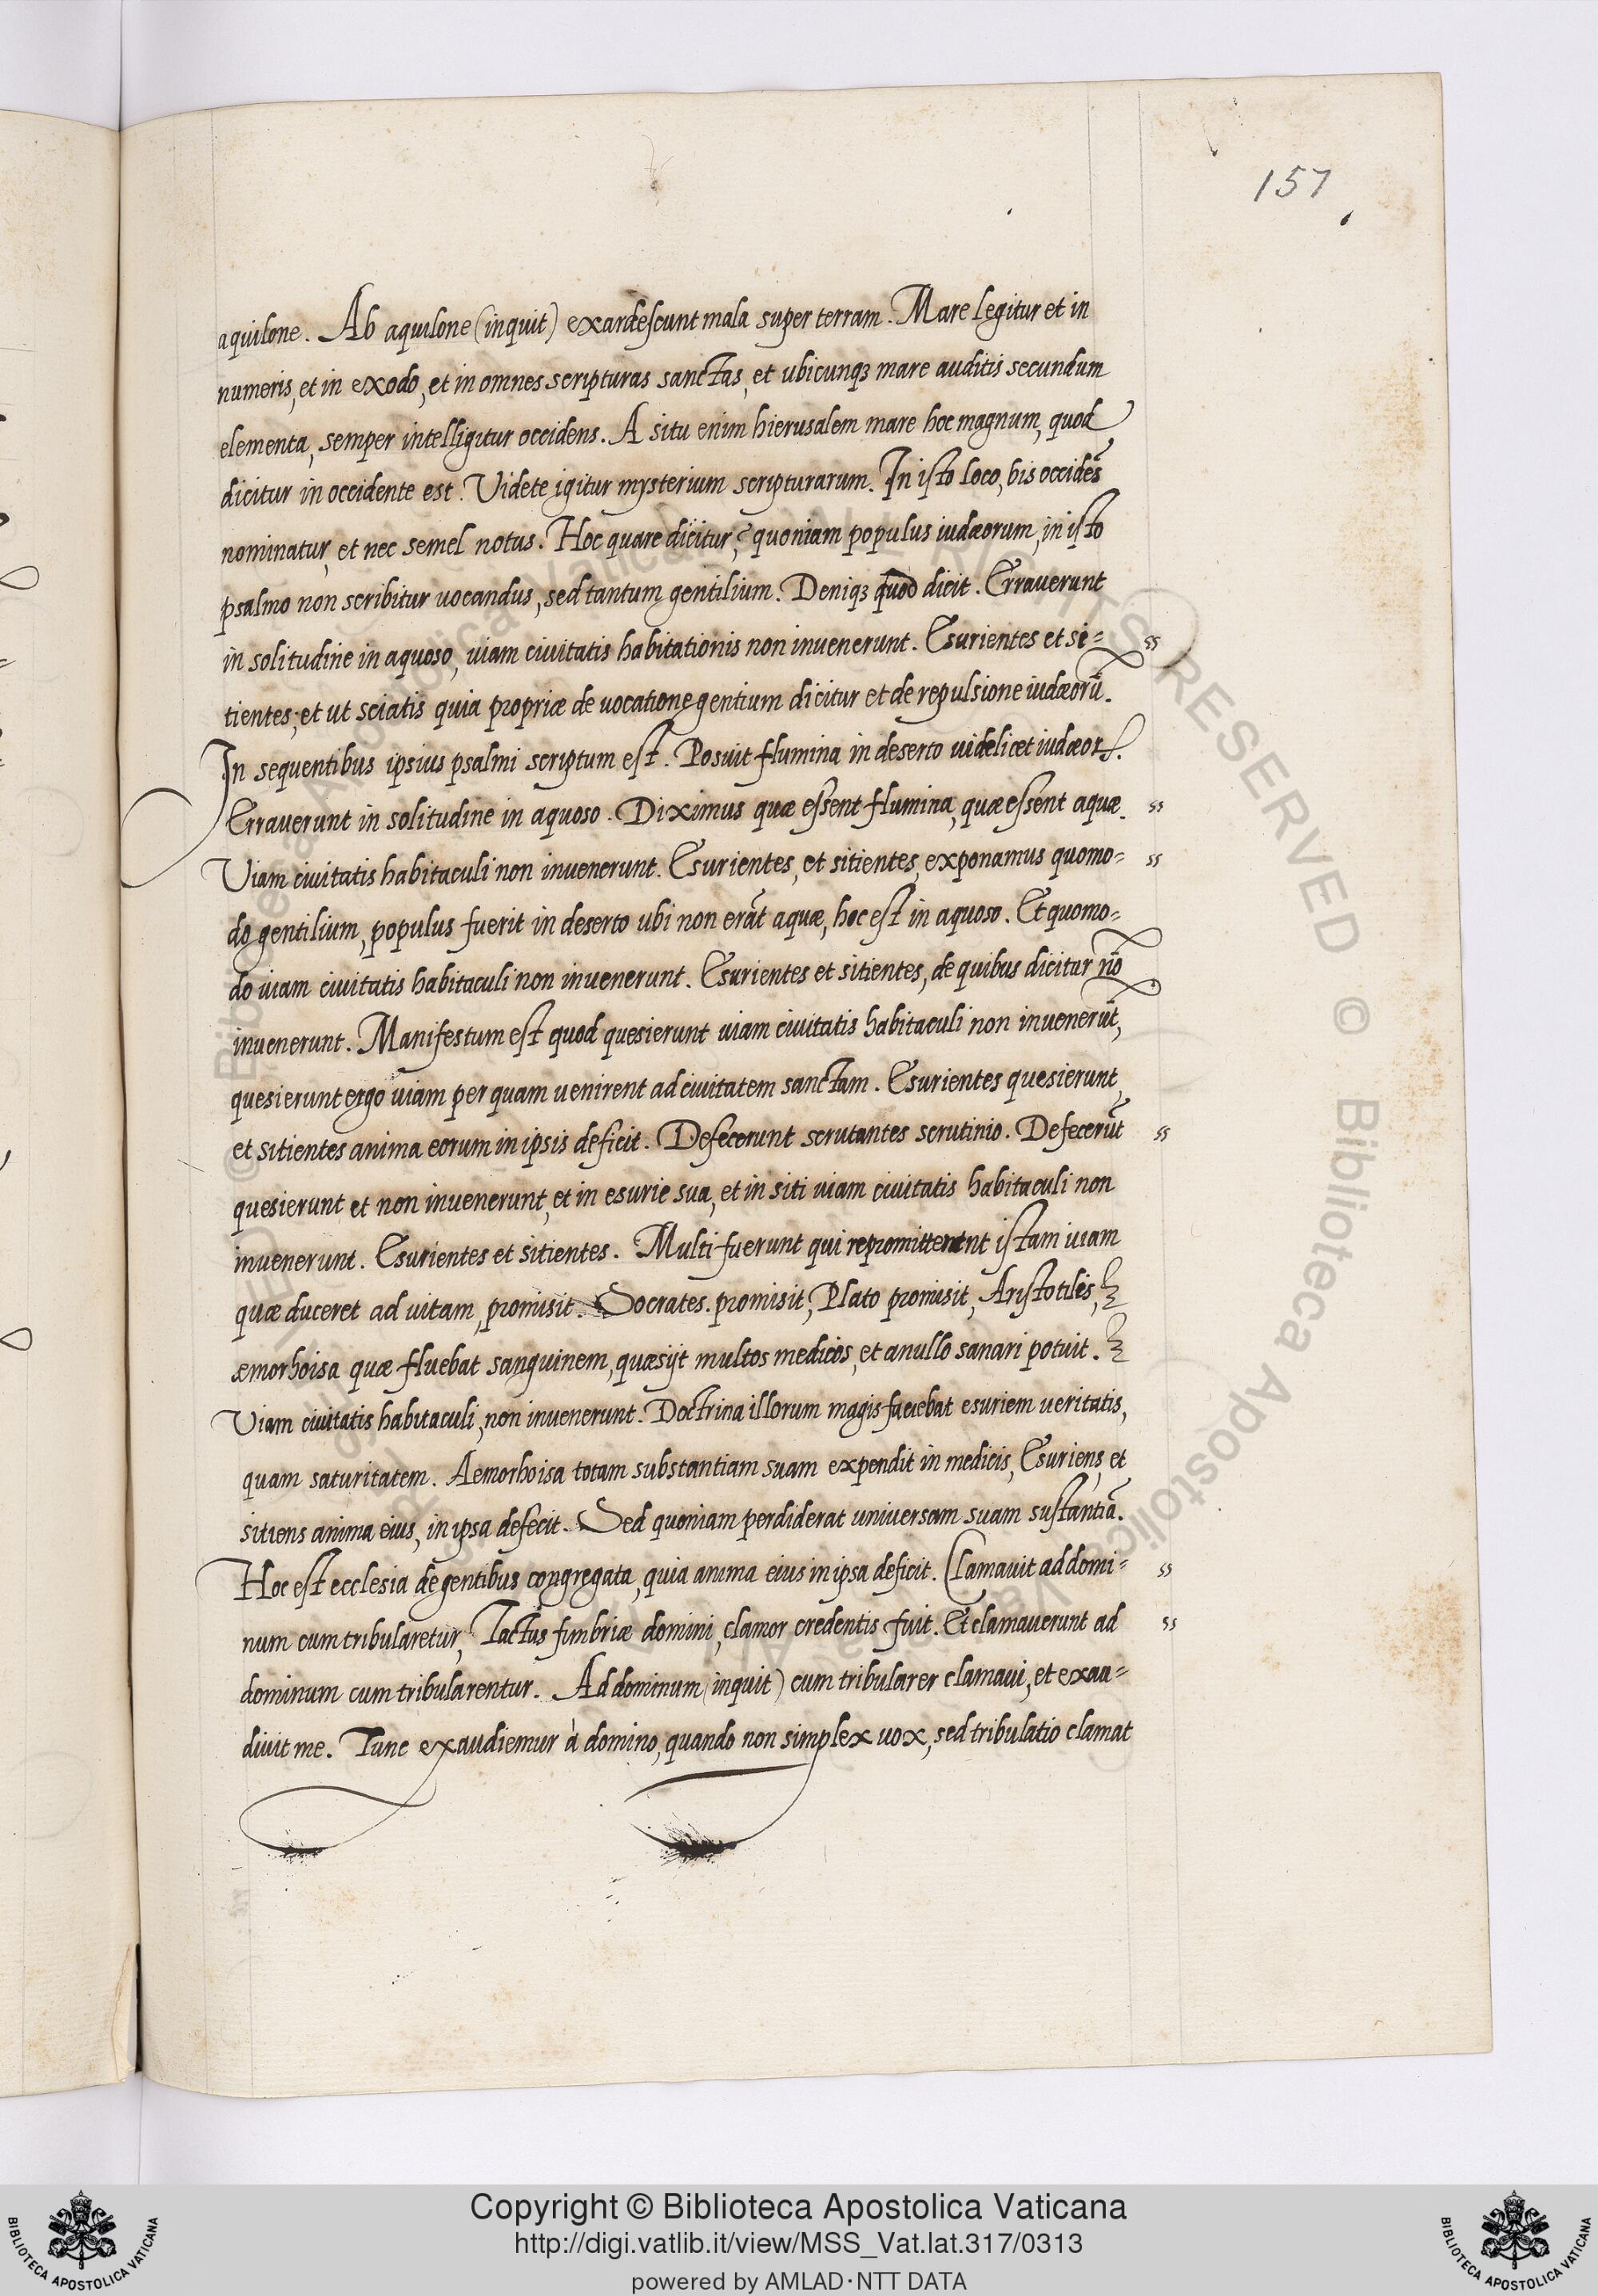 157
aquilone. Ab aquilone (inquit) exardescunt mala super terram. Mare legitur et in
numeris, et in exodo, et in omnes scripturas sanctas, et ubicunqꝫ mare auditis secundum
elementa, semper intelligitur occidens. A situ enim hierusalem mare hoc magnum, quod
dicitur in occidente est. Videte igitur mysterium scripturarum. In isto loco, bis occidẽs
nominatur, et nec semel notus. Hoc quare dicitur? quoniam populus iudæorum, in isto
psalmo non scribitur uocandus, sed tantum gentilium. Deniqꝫ quod dicit. Errauerunt
in solitudine in aquoso, uiam ciuitatis habitationis non inuenerunt. Esurientes et si=
tientes, et ut sciatis quia propriæ de uocatione gentium dicitur et de repulsione iudæorũ.
In sequentibus ipsius psalmi scriptum est. Posuit flumina in deserto uidelicet iudæoꝝ.
Errauerunt in solitudine in aquoso. Diximus quæ essent flumina, quæ essent aquæ.
Viam ciuitatis habitaculi non inuenerunt. Esurientes, et sitientes, exponamus quomo=
do gentilium, populus fuerit in deserto ubi non erãt aquæ, hoc est in aquoso. Et quomo=
do uiam ciuitatis habitaculi non inuenerunt. Esurientes et sitientes, de quibus dicitur nõ
inuenerunt. Manifestum est quod quesierunt uiam ciuitatis habitaculi non inuenerũt,
quesierunt ergo uiam per quam uenirent ad ciuitatem sanctam. Esurientes quesierunt,
et sitientes anima eorum in ipsis deficit. Defecerunt scrutantes scrutinio. Defecerũt
quesierunt et non inuenerunt, et in esurie sua, et in siti uiam ciuitatis habitaculi non
inuenerunt. Esurientes et sitientes. Multi fuerunt qui repromitterent istam uiam
quæ duceret ad uitam, promisit. Socrates. promisit, Plato promisit, Aristotiles,
æmorhoisa quæ fluebat sanguinem, quæsijt multos medicos, et anullo sanari potuit.
Viam ciuitatis habitaculi, non inuenerunt. Doctrina illorum magis faciebat esuriem ueritatis,
quam saturitatem. Aemorhoisa totam substantiam suam expendit in medicis, Esuriens, et
sitiens anima eius, in ipsa defecit. Sed quoniam perdiderat uniuersam suam sustantiã.
Hoc est ecclesia de gentibus congregata, quia anima eius in ipsa deficit. Clamauit ad domi=
num cum tribularetur, Tactus fimbriæ domini, clamor credentis fuit. Et clamauerunt ad
dominum cum tribularentur. Ad dominum (inquit) cum tribularer clamaui, et exau=
diuit me. Tunc exaudiemur à domino, quando non simplex uox, sed tribulatio clamat
Copyright © Biblioteca Apostolica Vaticana
http://digi.vatlib.it/view/MSS_Vat.lat.317/0313
powered by AMLAD·NTT DATA
BIBLIOTECA APOSTOLICA VATICANA
BIBLIOTECA APOSTOLICA VATICANA